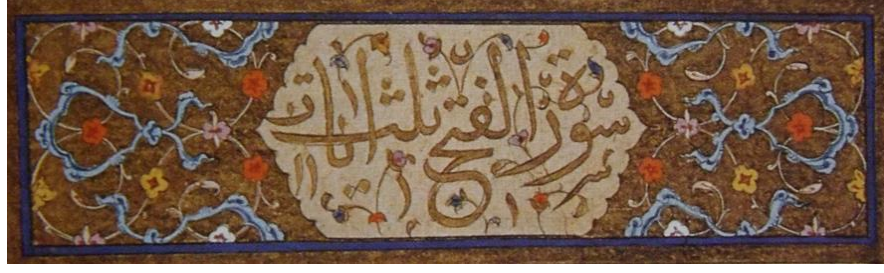 سورة الفتح ثلث اٰيات